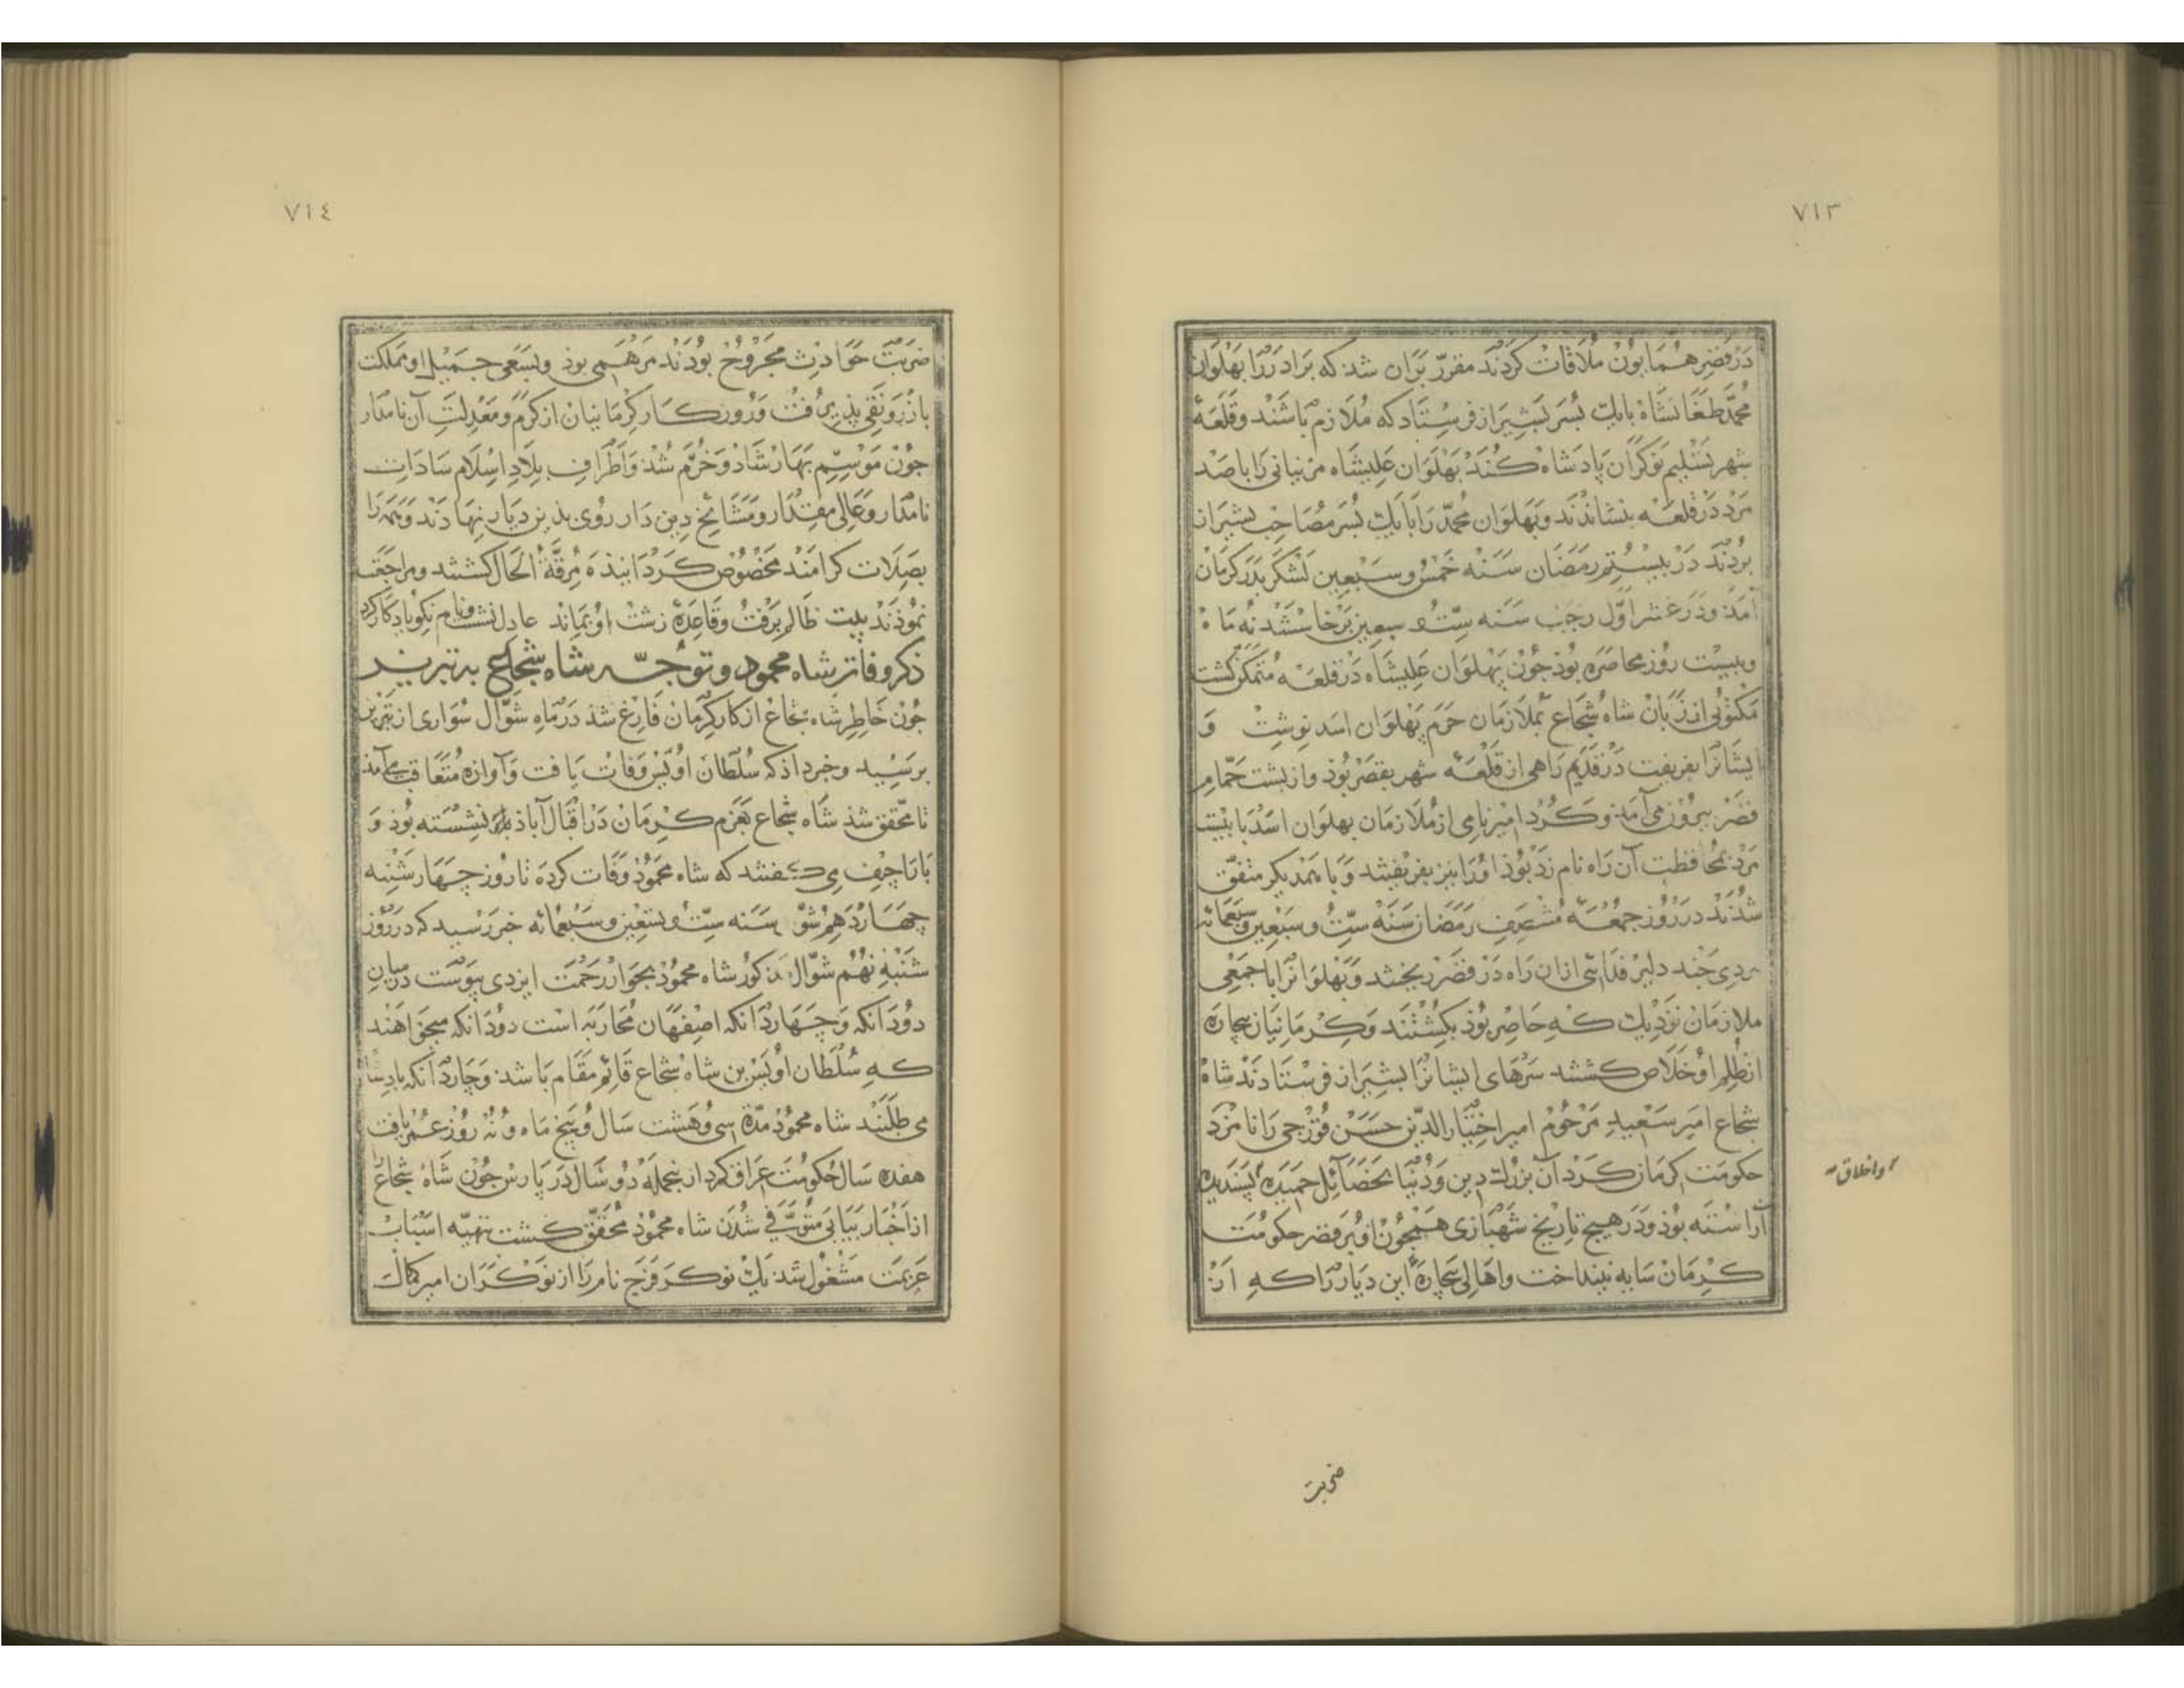 ٧١٣
در قصر همایون ملاقات کردند مقرر بران شد که برادر را بهلوان
محمد طغانشاه بایک بسر بشیراز فرستاد که ملازم باشند و قلعهٔ
شهر بتسلیم نوکران پادشاه کند بهلوان علیشاه مزینانی را باصد
مرد در قلعه بنشاندند و بهلوان محمد را بایک بسر مصاحب بشیراز
بردند در بیستم رمضان سنه خمس و سبعین لشکر بدر کرمان
آمد و در عشر اول رجب سنه ست و سبعین برخاستند نه ماه
و بیست روز محاصره بوذ جون بهلوان علیشاه در قلعه متمکن کشت
مکتوبی از زبان شاه شجاع بملازمان حرم بهلوان اسد نوشت و
ایشانرا بفریفت در قدیم راهی از قلعهٔ شهر بقصر بوذ و از بشت حمام
قصر بیرون می آمذ و کرد امیر نامی از ملازمان بهلوان اسد با بیست
مرد بمحافظت آن راه نام زد بوذ اورا نیز بفریفتند و با یکدیکر متفق
شدند در روز جمعهٔ منتصف رمضان سنه ست و سبعین و سبعمائه
مردی جند دلیر فدائی ازان راه در قصر ریختند و بهلوانرا با جمعی
ملازمان نزدیک که حاضر بوذ بکشتند و کرمانیان بیجاره
از ظلم او خلاص کشتند سرهای ایشانرا بشیراز فرستادند شاه
شجاع امیر سعید مرحوم امیر اختیار الدین حسن قورجی را نامزد
حکومت کرمان کرد آن بزرک دین و دنیا بخصائل حمیده بسندیده
واخلاق
آراسته بوذ و در هیج تاریخ شهبازی همجون او بر قصر حکومت
کرمان سایه نینداخت و اهالی بیجارهٔ این دیار را که از
ضربت
٧١٤
ضربت حوادث مجروح بودند مرهمی بوذ و بسعی جمیل او مملکت
باز رونقی بذیرفت و روزکار کرمانیان از کرم و معدلت آن نامدار
جون موسم بهار شاد و خرم شذ و اطراف بلاد اسلام سادات
نامدار و عالی مقدار و مشائخ دین دار روی بذین دیار نهادند و همه را
بصلات کرامند مخصوص کردانیذه مرفه الحال کشتند و مراجعت
نموذند بیت ظالم برفت و قاعدهٔ زشت او بماند عادل نشست و نام نکو یادکار کرد
ذکر وفات شاه محمود و توجه شاه شجاع به تبریز
جون خاطر شاه شجاع از کار کرمان فارغ شذ در ماه شوال سواری از تبریز
برسید و خبر داذ که سلطان اویس وفات یافت و آوازه متعاقب می آمذ
تا محقق شذ شاه شجاع بعزم کرمان در اقبال آباذ نشسته بوذ و
باراجیف می کفتند که شاه محموذ وفات کرده تا روز جهار شنبه
جهاردهم شوال سنه ست و سبعین و سبعمائه خبر رسید که در روز
شنبه نهم شوال مذکور شاه محموذ بجوار رحمت ایزدی بیوست در میان
دو دانکه و جهار دانکه اصفهان محاربه است دو دانکه میخواهند
که سلطان اویس بن شاه شجاع قائم مقام باشد و جهار دانکه بادشاه
می طلبند شاه محموذ مدة سی و هشت سال و بنج ماه و نه روز عمر یافت
هفده سال حکومت عراق کرد از نجمله دو سال در بارس جون شاه شجاع را
از اخبار بیابی متوفی شدن شاه محموذ محقق کشت بتهیه اسباب
عزیمت مشغول شد یک نوکر فرج نام را از نوکران امیر